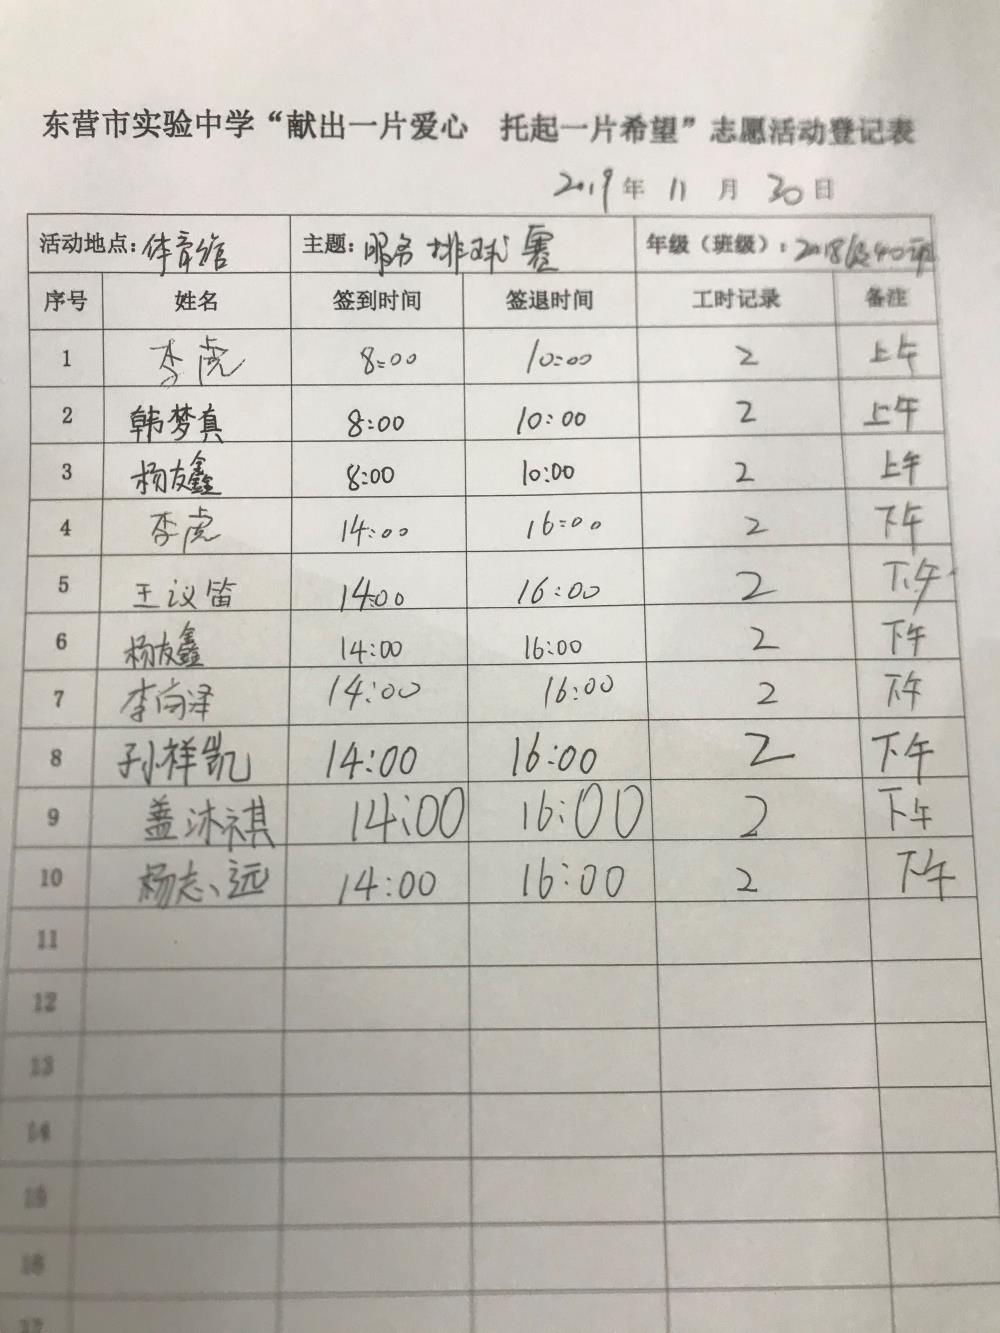 东营市实验中学“献出一片爱心 托起一片希望”志愿活动登记表
2019年 11 月 30 日
活动地点：体育馆 主题：服务排球赛 年级（班级）：2018级40班
序号 姓名 签到时间 签退时间 工时记录 备注
1 李虎 8:00 10:00 2 上午
2 韩梦真 8:00 10:00 2 上午
3 杨友鑫 8:00 10:00 2 上午
4 李虎 14:00 16:00 2 下午
5 王议笛 14:00 16:00 2 下午
6 杨友鑫 14:00 16:00 2 下午
7 李尚泽 14:00 16:00 2 下午
8 孙祥凯 14:00 16:00 2 下午
9 盖沐祺 14:00 16:00 2 下午
10 杨志远 14:00 16:00 2 下午
11
12
13
14
15
16
17